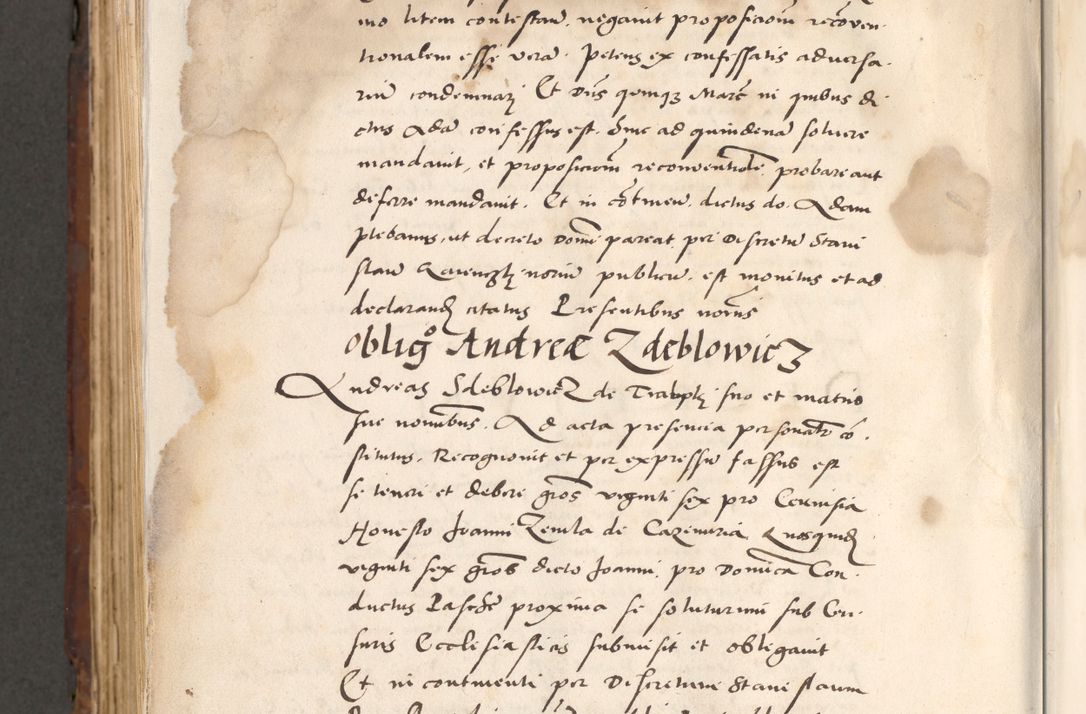 mo litem contestan. negavit proposicioni recoven
tionalem esse vera. Petens ex confessatis adversa.
riu condemnari Et Dns quinqz Marc in quibus di
ctus Ada confessus est. hinc ad quindena solvere
mandavit, et proposicioni reconventiole probare aut
deferre mandavit. Et in cotinen. dictus do. Adam
plebanus, ut decreto Domi pareat per Discretu Stani
slau notariu publicu. est monitus et ad
declarand citatus Presentibus notris
obligo Andreæ Zdeblowicz
Andreas Sdeblowicz de suo et matris
sue nominibus. Ad acta presencia personalr co.
stitutus. Recognovit et per expressu fassus est
se teneri et debere gros viginti sex pro Cervisia
Honesto Joanni Zemla de Cazimiria Quosquid
viginti sex gros dicto Joanni. pro Domica Con.
ductus Pasche proxima se soluturum sub Cen
suris Ecclesiasticis submisit et obligavit
Et in continenti per Discretum Stanislaum